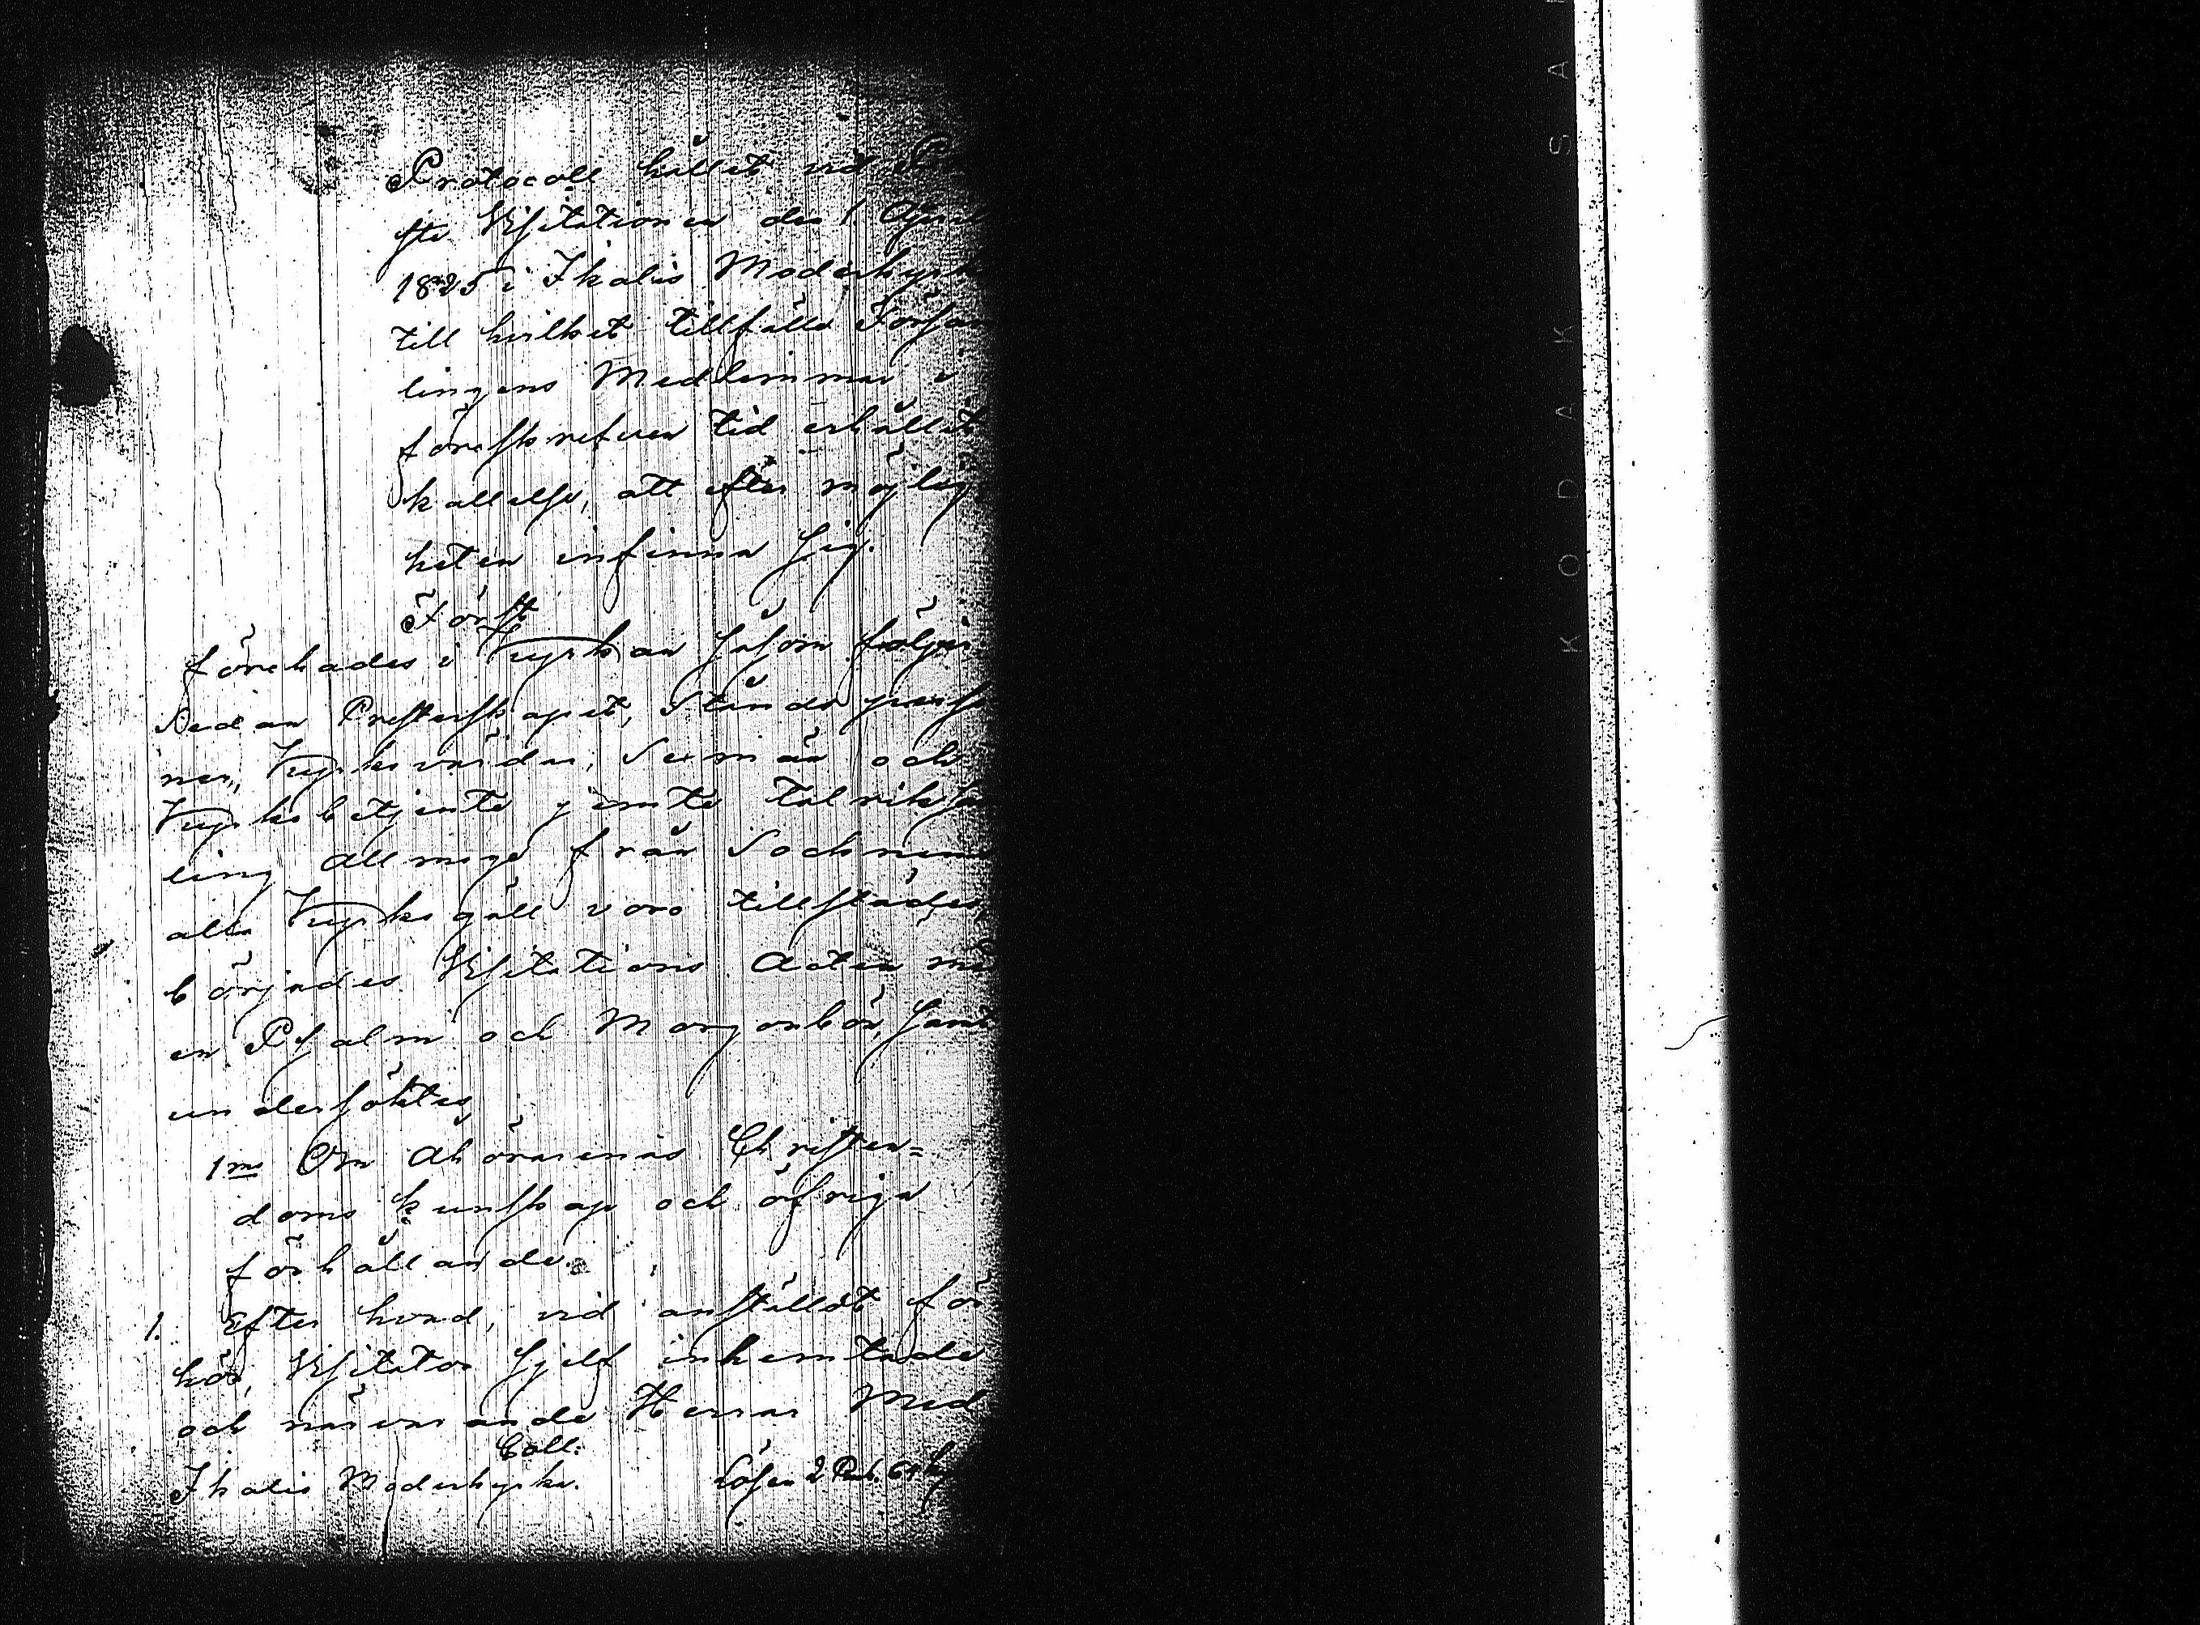 Protocoll hållit vid
ste Visitationen den 1 April
1825 i Ikalis Moderkyrk
till hvilket tillfälle Försam
lingens Medlemmar i
föreskrefven tid erhållit
kallelse, att efter möjlig
heten infinna sig.
Först
förehades i Kyrkan såsom följer
Sedan Presterskapet, Stånds perso
ner, Kyrkovärdar, Sexmän och
Kyrkobetjente jemte talrik sam
ling Allmoge från Socknene
alla Kyrkogäll voro tillstädes,
börjades Visitations Acten me
en Psalm och Morgonbön, samt
undersöktes
1mo Om Åhörarenas Christen=
doms kunskap och öfriga
förhållande.
1. Efter hvad, vid anstäldt för
hör, Visitator sjelf inhemtade
och närvarande Herrar Med
Coll:
Ikalis Moderkyrka. Lösen 2 Rub. 64 k
KODAK SA